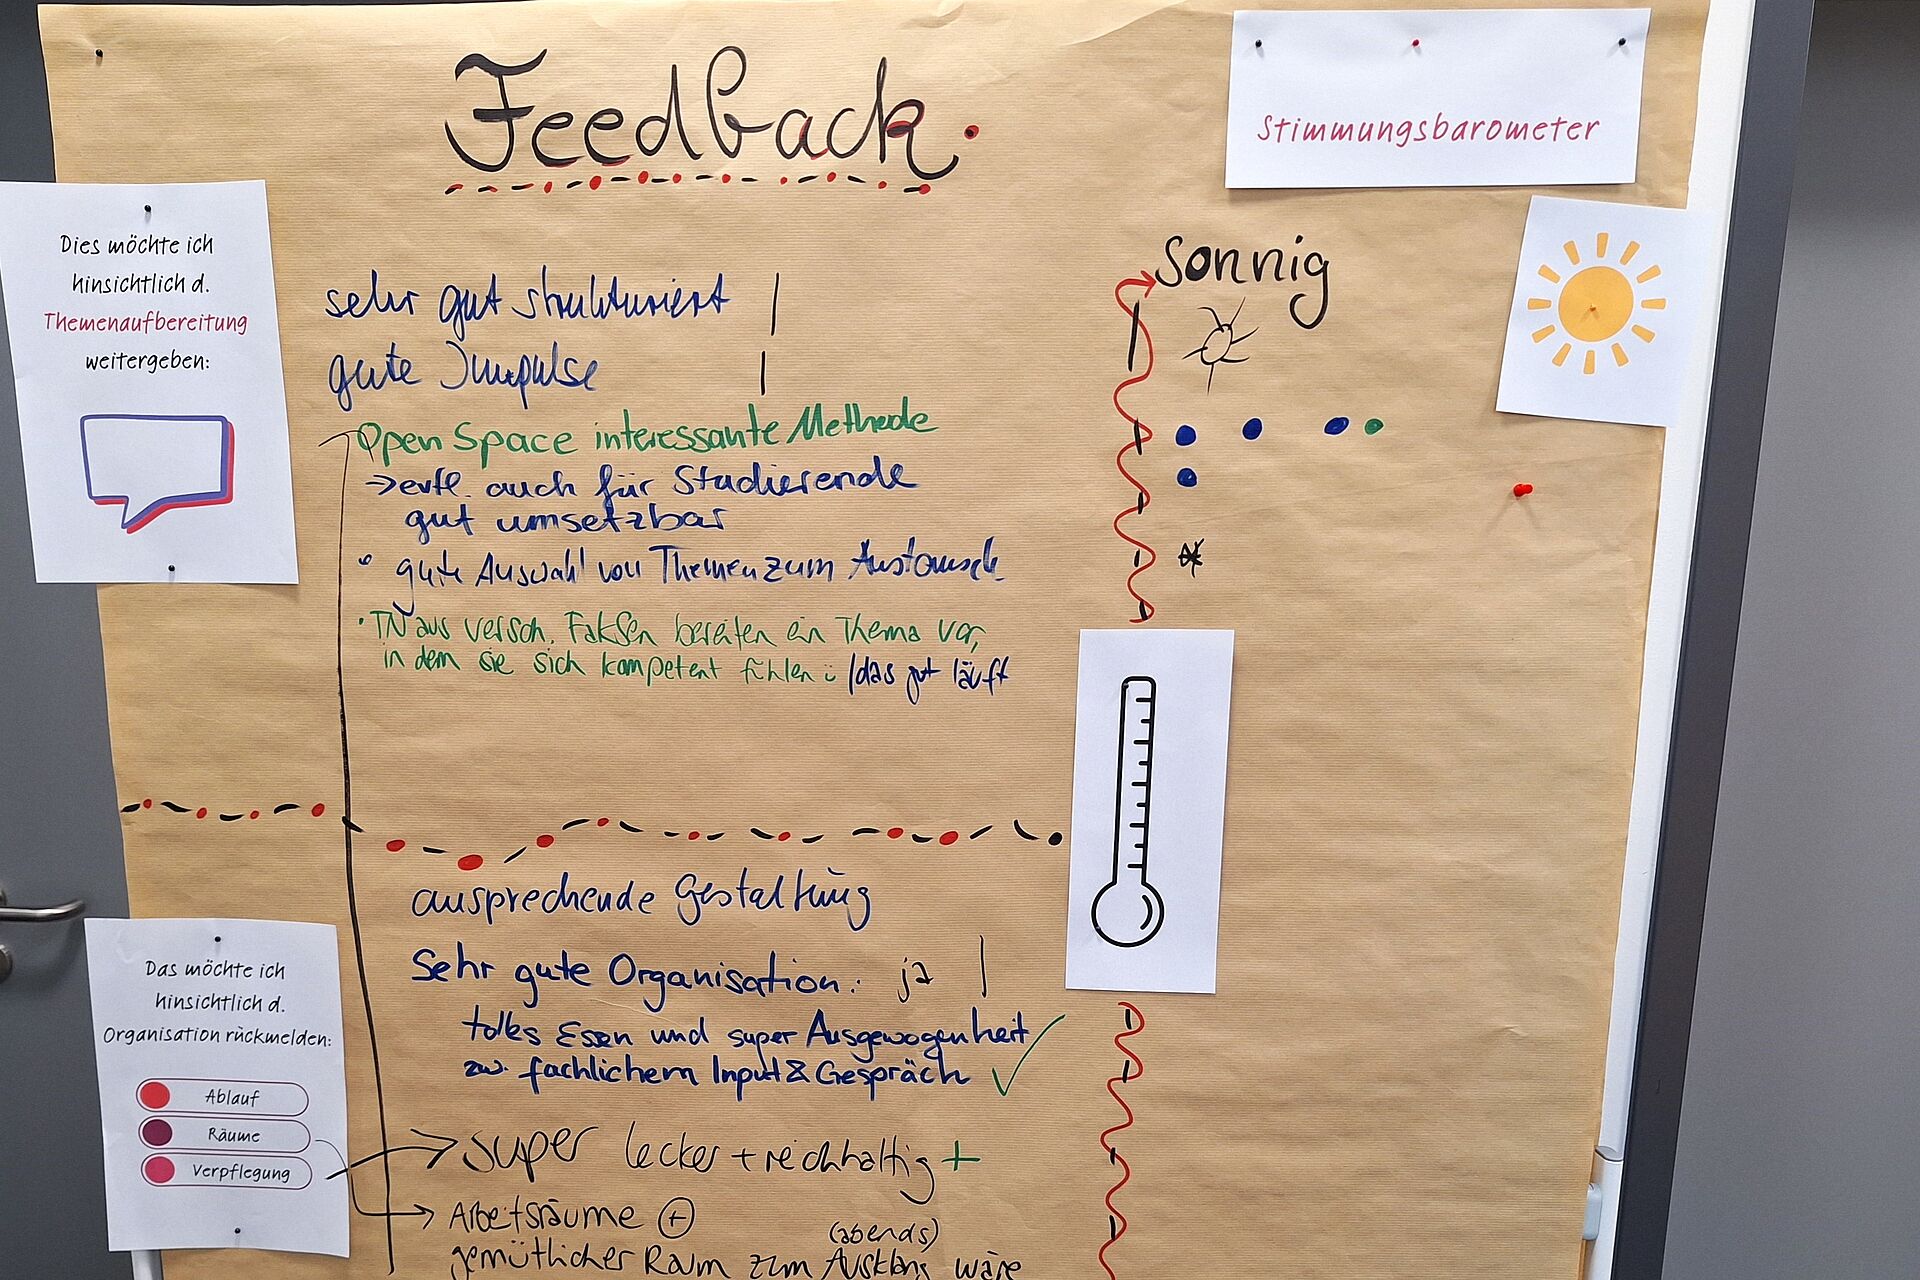 Feedback.
Stimmungsbarometer
Dies möchte ich
hinsichtlich d.
Themenaufbereitung
weitergeben:
sehr gut strukturiert |
gute Impulse |
Open Space interessante Methode
→ evtl. auch für Studierende
gut umsetzbar
• gute Auswahl von Themen zum Austausch
• TN aus versch. FakSen bereiten ein Thema vor,
in dem sie sich kompetent fühlen ü /das gut läuft
sonnig
ansprechende Gestaltung
Sehr gute Organisation: ja |
tolles Essen und super Ausgewogenheit
zw. fachlichem Input & Gespräch ✓
super lecker + reichhaltig +
Arbeitsräume ⊕
(abends)
gemütlicher Raum zum Ausklang wäre
Das möchte ich
hinsichtlich d.
Organisation rückmelden:
Ablauf
Räume
Verpflegung